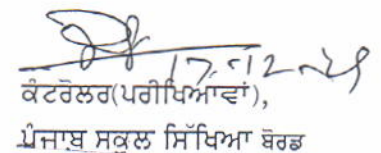 17-12-25
ਕੰਟਰੋਲਰ(ਪਰੀਖਿਆਵਾਂ),
ਪੰਜਾਬ ਸਕੂਲ ਸਿੱਖਿਆ ਬੋਰਡ